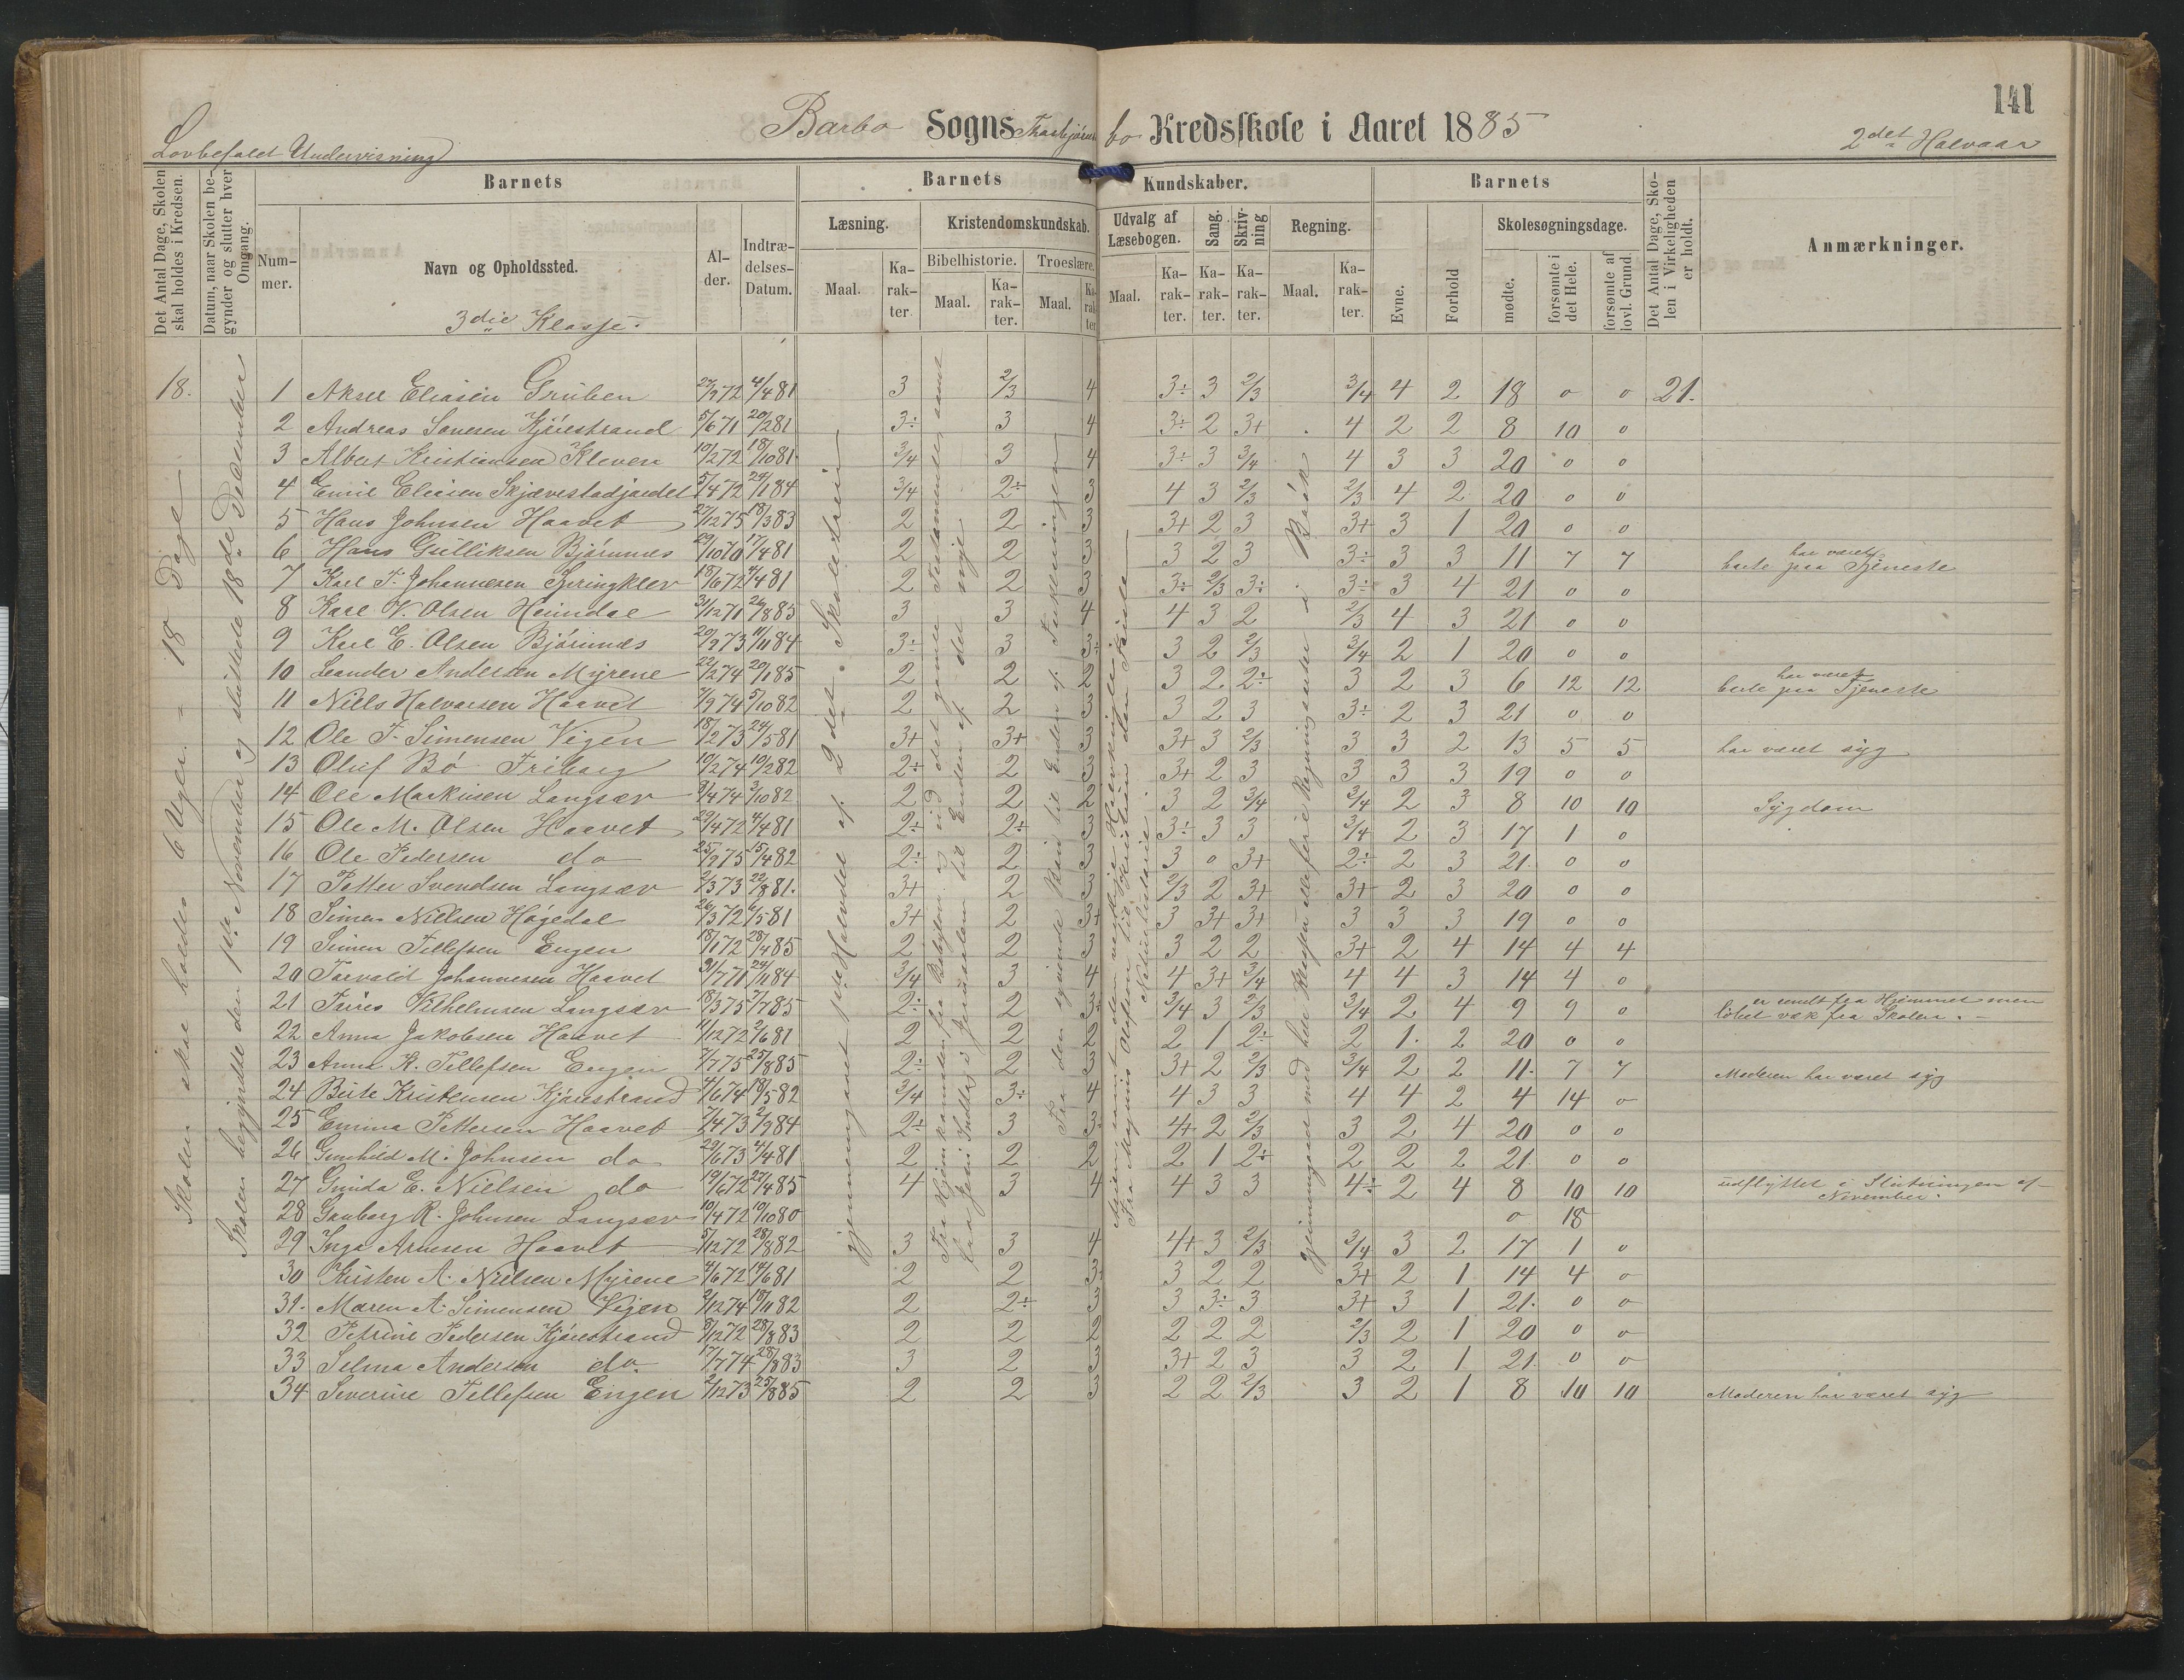 141
Barbo Sogns bo Kredsskole i Aaret 1885
Lovbefalet Undervisning 2det Halvaar
Det Antal Dage, Skolen skal holdes i Kredsen.
Datum, naar Skolen begynder og slutter hver Omgang.
Barnets
Barnets Kundskaber.
Barnets
Det Antal Dage, Skolen i Virkeligheden er holdt.
Anmærkninger.
Nummer.
Navn og Opholdssted.
Alder.
Indtrædelses-Datum.
Læsning.
Kristendomskundskab.
Bibelhistorie.
Troeslære.
Udvalg af Læsebogen.
Sang.
Skrivning
Regning.
Maal.
Karakter.
Evne.
Forhold
Skolesøgningsdage.
mødte.
forsømte i det Hele.
forsømte af lovl. Grund.
3die Klasse.
Skolen skal holdes 6 Uger = 18 Dage
Skolen begyndte den November og sluttede 18de December
gjennemgaaet 1ste Halvdel af 2det Skoletrin
18. 1 Aksel Eliasen Gruben 27/9 72 4/4 81 3 2/3 4 3÷ 3 2/3 3/4 4 2 18 0 0 21.
2 Andreas Kjørestrand 5/6 71 20/2 81 3÷ 3 4 3÷ 2 3+ 4 2 2 8 10 0
3 Albert Kristiansen Kleven 19/2 72 18/10 81 3/4 3 4 3÷ 3 3/4 4 3 3 20 0 0
4 Emil Eliasen 5/4 72 24/1 84 3/4 2÷ 3 4 3 2/3 2/3 4 2 20 0 0
5 Hans Johnsen Haavet 27/12 75 18/3 83 2 2 3 3+ 2 3 3+ 3 1 20 0 0
6 Hans Gulliksen Bjørnnes 29/10 70 17/4 81 2 2 3 3 2 3 3÷ 3 3 11 7 7 har været borte paa Tjeneste
7 Karl F. Johannesen Springklev 18/6 72 4/4 81 2 2 3 3÷ 2/3 3÷ 3÷ 3 4 21 0 0
8 Karl V. Olsen Heimdal 31/12 71 26/8 85 3 3 4 4 3 2 2/3 4 3 21 0 0
9 Karl E. Olsen Bjørnnes 20/9 73 11/11 84 3÷ 3 3÷ 3 2 2/3 3/4 2 1 20 0 0
10 Leander Andersen Myrene 22/2 74 20/1 85 2 2 2 3 2 2÷ 3 2 3 6 12 12 har været borte paa Tjeneste
11 Niels Halvorsen Haavet 7/9 74 5/10 82 2 2 3 3 2 3 3÷ 2 3 21 0 0
12 Ole F. Simensen Vigen 18/2 73 24/5 81 3+ 3+ 3 3+ 3 2/3 3 3 2 13 5 5 har været syg
13 Oluf Bø Friborg 10/2 74 19/2 82 2÷ 2 3 3+ 2 3 3 3 3 19 0 0
14 Ole Markusen Langsæv 3/4 74 2/10 82 2 2 2 3 2 3/4 3/4 2 3 8 10 10 Sygdom
15 Ole M. Olsen Haavet 29/4 72 4/4 81 2÷ 2÷ 3 3÷ 3 3 3/4 2 3 17 1 0
16 Ole Pedersen do 25/9 75 15/4 82 2÷ 2 3 3 0 3+ 2÷ 2 3 21. 0 0
17 Petter Svendsen Langsæv 2/3 73 22/8 81. 3+ 2 3 2/3 2 3+ 3+ 2 3 20 0 0
18 Simen Nielsen Høgedal 26/3 72 6/5 81 3+ 2 3+ 3 3+ 3+ 3 3 3 19 0 0
19 Simen Tellefsen Engen 18/1 72 28/4 85 2 2 3 3 2 2 3+ 2 4 14 4 4
20 Torvald Johannesen Haavet 31/7 71 24/1 84 3/4 3 4 4 3+ 3/4 4 4 3 14 4 0
21 Vilhelmsen Langsæv 18/3 75 2/7 85 2÷ 2 3÷ 3/4 3 2/3 3/4 2 4 9 9 0 er sendt fra Hjemmet men løbet væk fra Skolen.
22 Anna Jakobsen Haavet 11/12 72 2/6 81 2 2 2 2 1 2÷ 2 1. 2 20 0 0
23 Anna K. Tellefsen Engen 7/7 75 25/8 85 2÷ 2 3 3+ 2 2/3 3/4 2 2 11. 7 7 Moderen har været syg
24 Kristensen Kjørestrand 4/6 74 18/5 82 3/4 3÷ 4 4 3 3 4 4 2 4 14 0
25 Emma Pettersen Haavet 7/4 73 2/9 84 2÷ 3 3÷ 4+ 2 2/3 3 2 4 20 0 0
26 Gunhild M. Johnsen do 29/6 73 4/4 81 2 2 2 2 1 2÷ 2 2 2 21. 0 0
27 Gunda E. Nielsen do 19/6 72 27/4 85 4 3 4 4 3 3 4÷ 2 4 8 10 10 udflyttet i Slutningen af November.
28 Gunborg R. Johnsen Langsæv 10/4 72 19/10 80 0 18
29 Inga Arnesen Haavet 5/12 72 28/8 82 3 3 4 4+ 3 2/3 3/4 3 2 17 1 0
30 Kirsten A. Nielsen Myrene 4/6 72 14/6 81 2 2 3÷ 3 2 2 3+ 2 1 14 4 0
31. Maren A. Simensen Vigen 2/12 74 18/11 82 2 2÷ 3 3 3÷ 3 3+ 3 1 21. 0 0
32 Petrine Pedersen Kjørestrand 5/12 72 28/8 83 2 2 2 2 2 2 2/3 2 1 20 0 0
33 Selma Andersen do. 17/7 74 28/8 83 3 2 3 3+ 2 3 3 2 1 21. 0 0
34 Severine Tellefsen Engen 2/12 73 25/8 85 2 2 3 2 2 2/3 3 2 1 8 10 10 Moderen har været syg